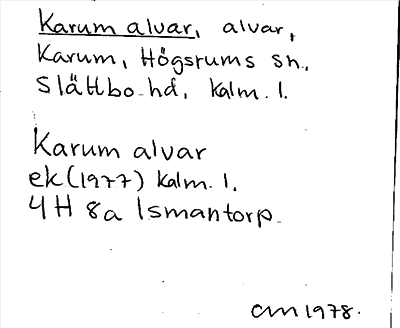 Karum alvar, alvar,
Karum, Högsrums sn.,
Slättbo hd, kalm. l.
Karum alvar
ek (1977) kalm. l.
4H 8a Ismantorp.
cm 1978.